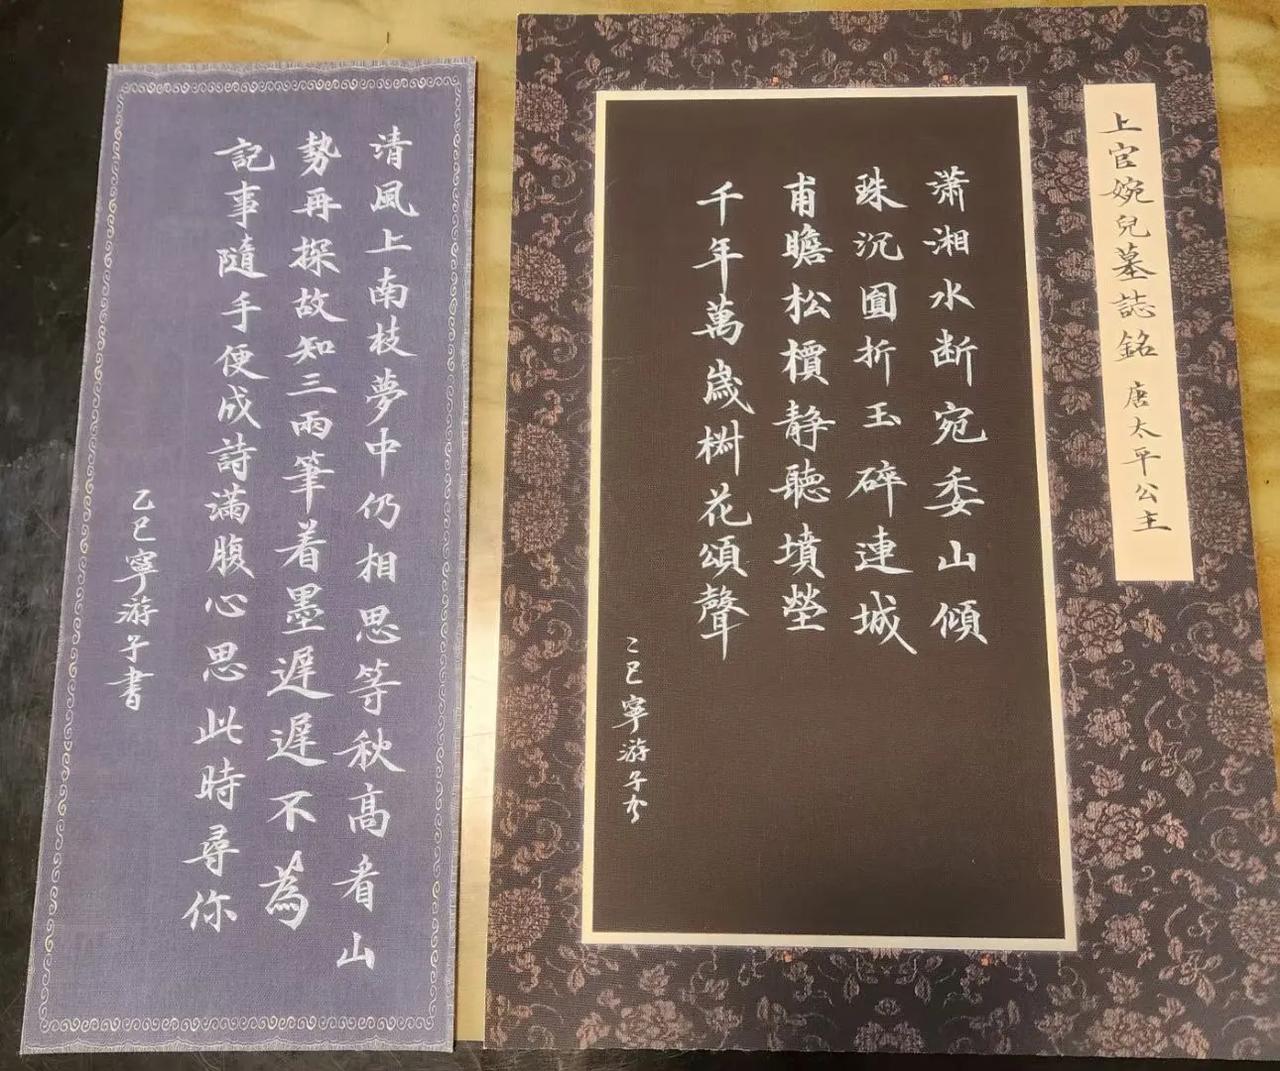 上官婉兒墓誌銘 唐太平公主
潇湘水断宛委山傾
珠沉圓折玉碎連城
甫瞻松檟静聽墳塋
千年萬歲椒花頌聲
乙巳寧游子书
清風上南枝夢中仍相思等秋高看山
勢再探故知三兩筆着墨遲遲不為
記事隨手便成詩滿腹心思此時尋你
乙巳寧游子書